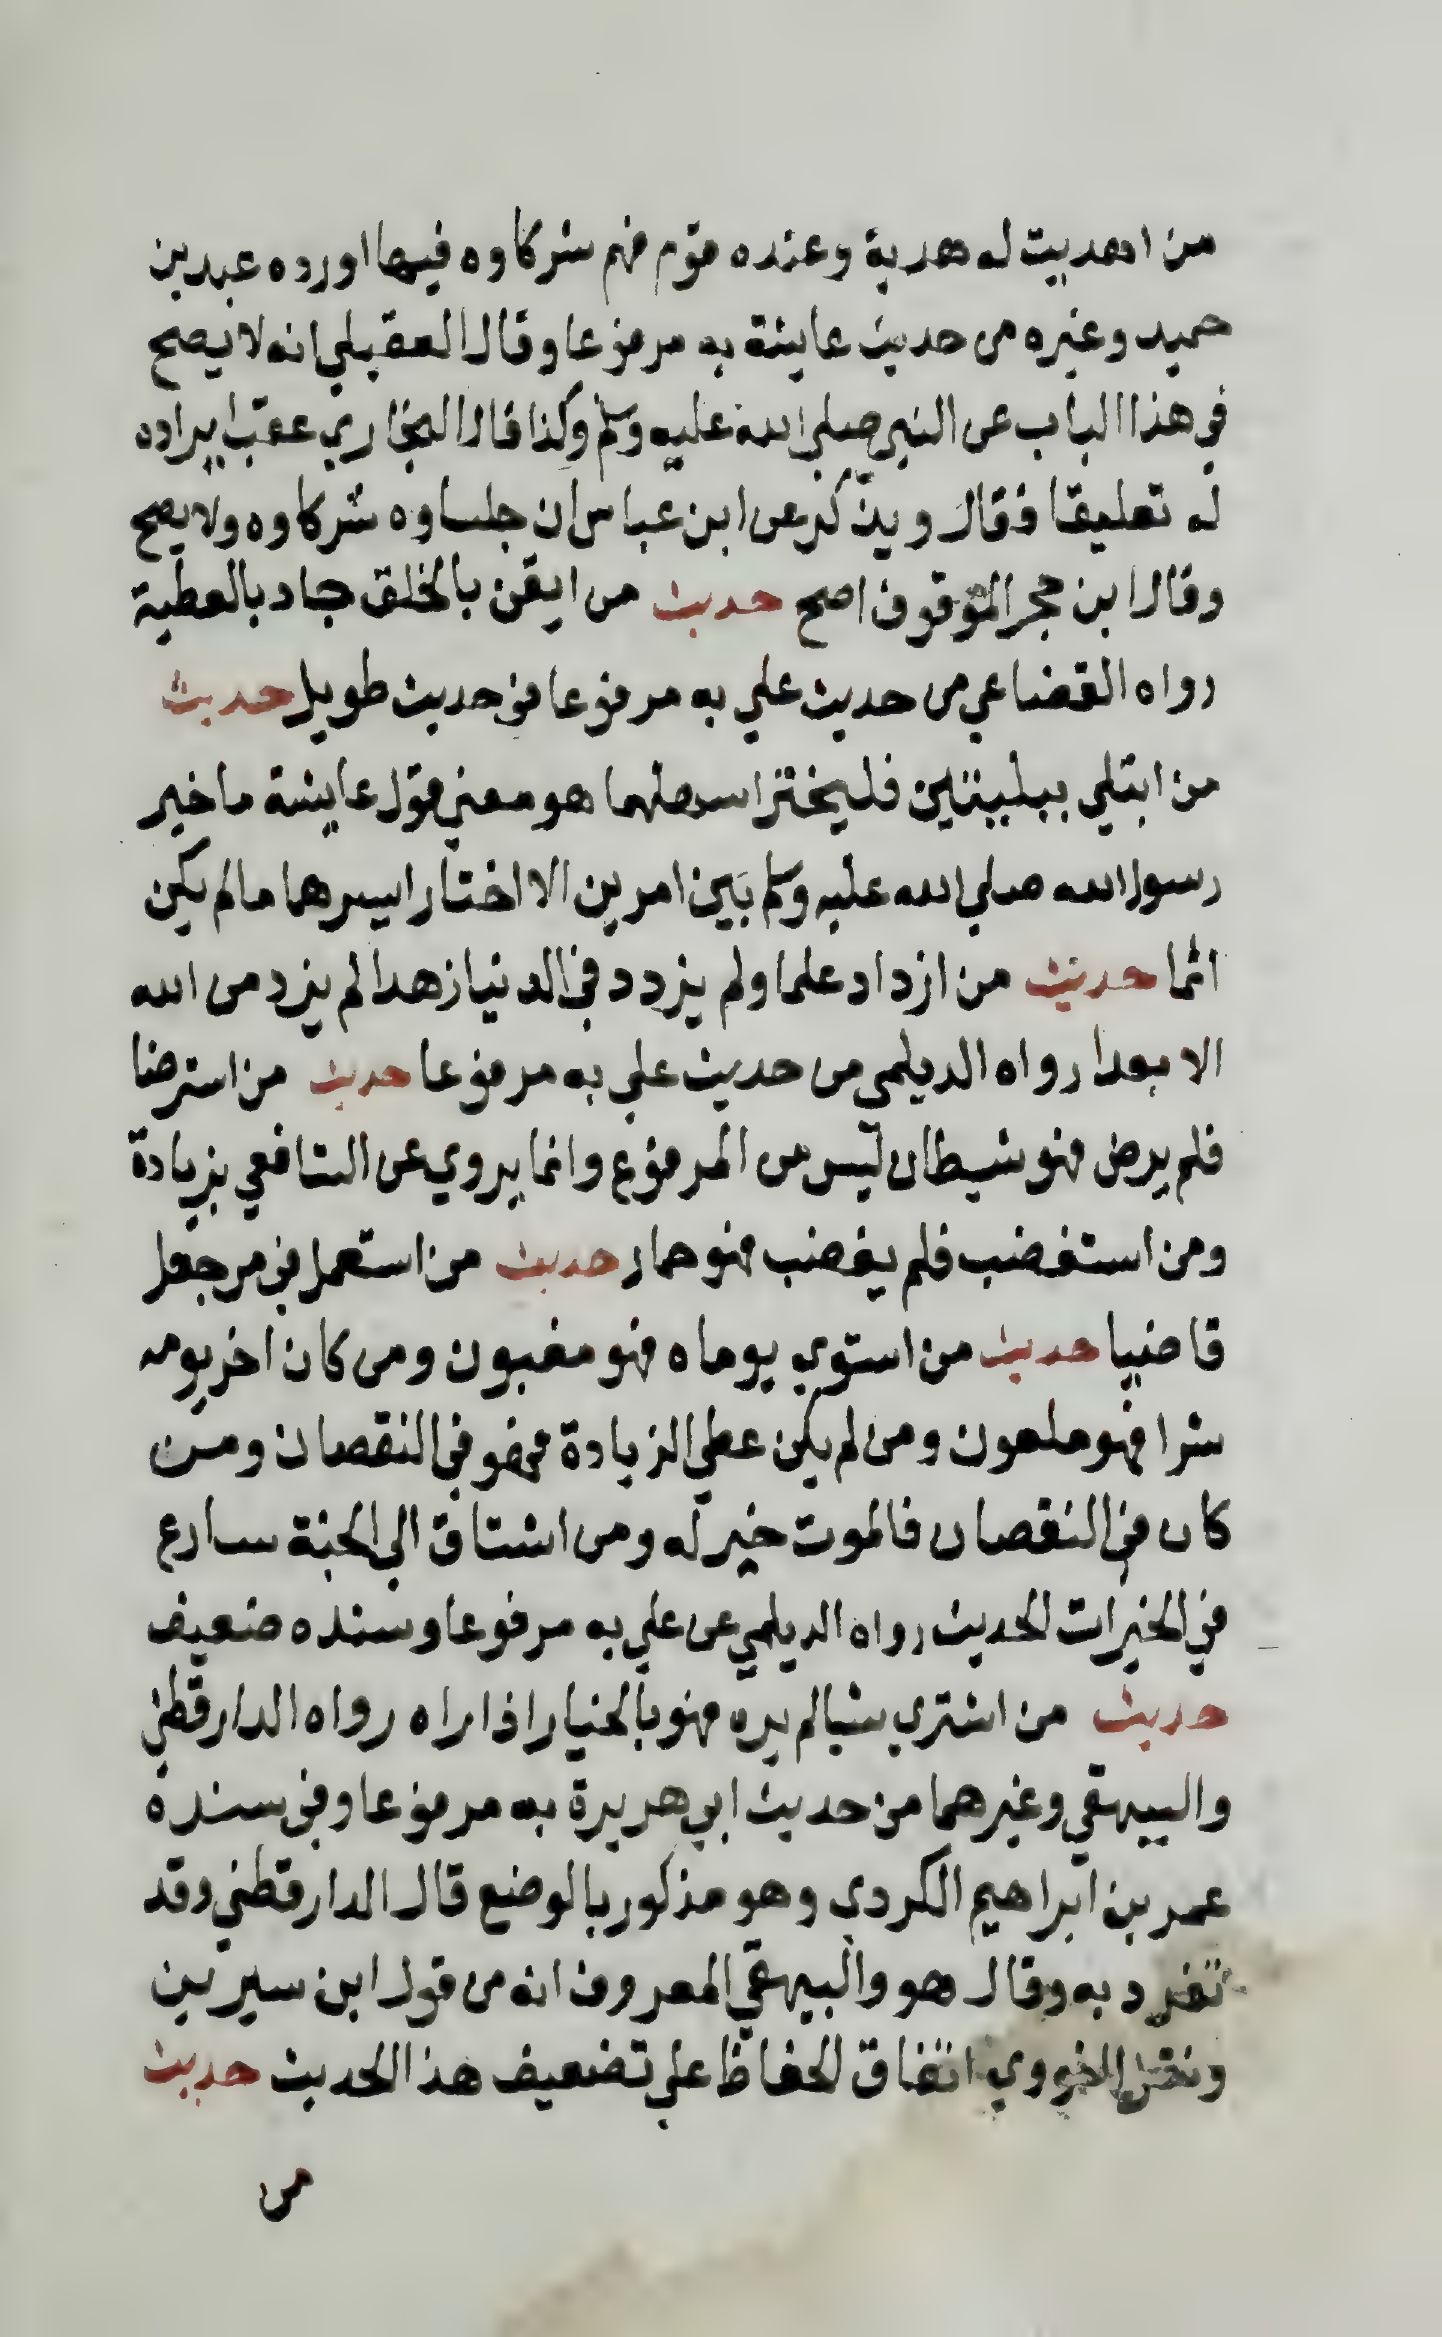 من اهديت له هدية وعنده قوم فهم شركاوه فيها اورده عبد بن
حميد وغيره من حديث عايشة به مرفوعا وقال العقيلي انه لا يصح
في هذا الباب عن النبي صلي الله عليه وسلم وكذا قال البخاري عقب ايراده
له تعليقا فقال ويذكر عن ابن عباس ان جلساوه شركاوه ولا يصح
وقال ابن حجر الموقوف اصح حديث من ايقن بالخلق جاد بالعطية
رواه القضاعي من حديث علي به مرفوعا في حديث طويل حديث
من ابتلي ببليتين فليختر اسهلهما هو معني قول عايشة ما خير
رسول الله صلي الله عليه وسلم بين امرين الا اختار ايسرهما مالم يكن
اثما حديث من ازداد علما ولم يزدد في الدنيا زهدا لم يزد من الله
الا بعدا رواه الديلمي من حديث علي به مرفوعا حديث من استرضا
فلم يرض فهو شيطان ليس من المرفوع وانما يروي عن الشافعي بزيادة
ومن استغضب فلم يغضب فهو حمار حديث من استعمل في من جعل
قاضيا حديث من استوي يوماه فهو مغبون ومن كان اخر يومه
شرا فهو ملعون ومن لم يكن عطي الزيادة فهو في النقصان ومن
كان في النقصان فالموت خير له ومن اشتاق الي الجنة سارع
في الخيرات الحديث رواه الديلمي عن علي به مرفوعا وسنده ضعيف
حديث من اشتري شيا لم يره فهو بالخيار اذا راه رواه الدارقطني
والبيهقي وغيرهما من حديث ابي هريرة به مرفوعا وفي سنده
عمر بن ابراهيم الكردي وهو مذكور بالوضع قال الدارقطني وقد
تفرد به وقال هو والبيهقي المعروف انه من قول ابن سيرين
ونقل النووي اتفاق الحفاظ علي تضعيف هذا الحديث حديث
من